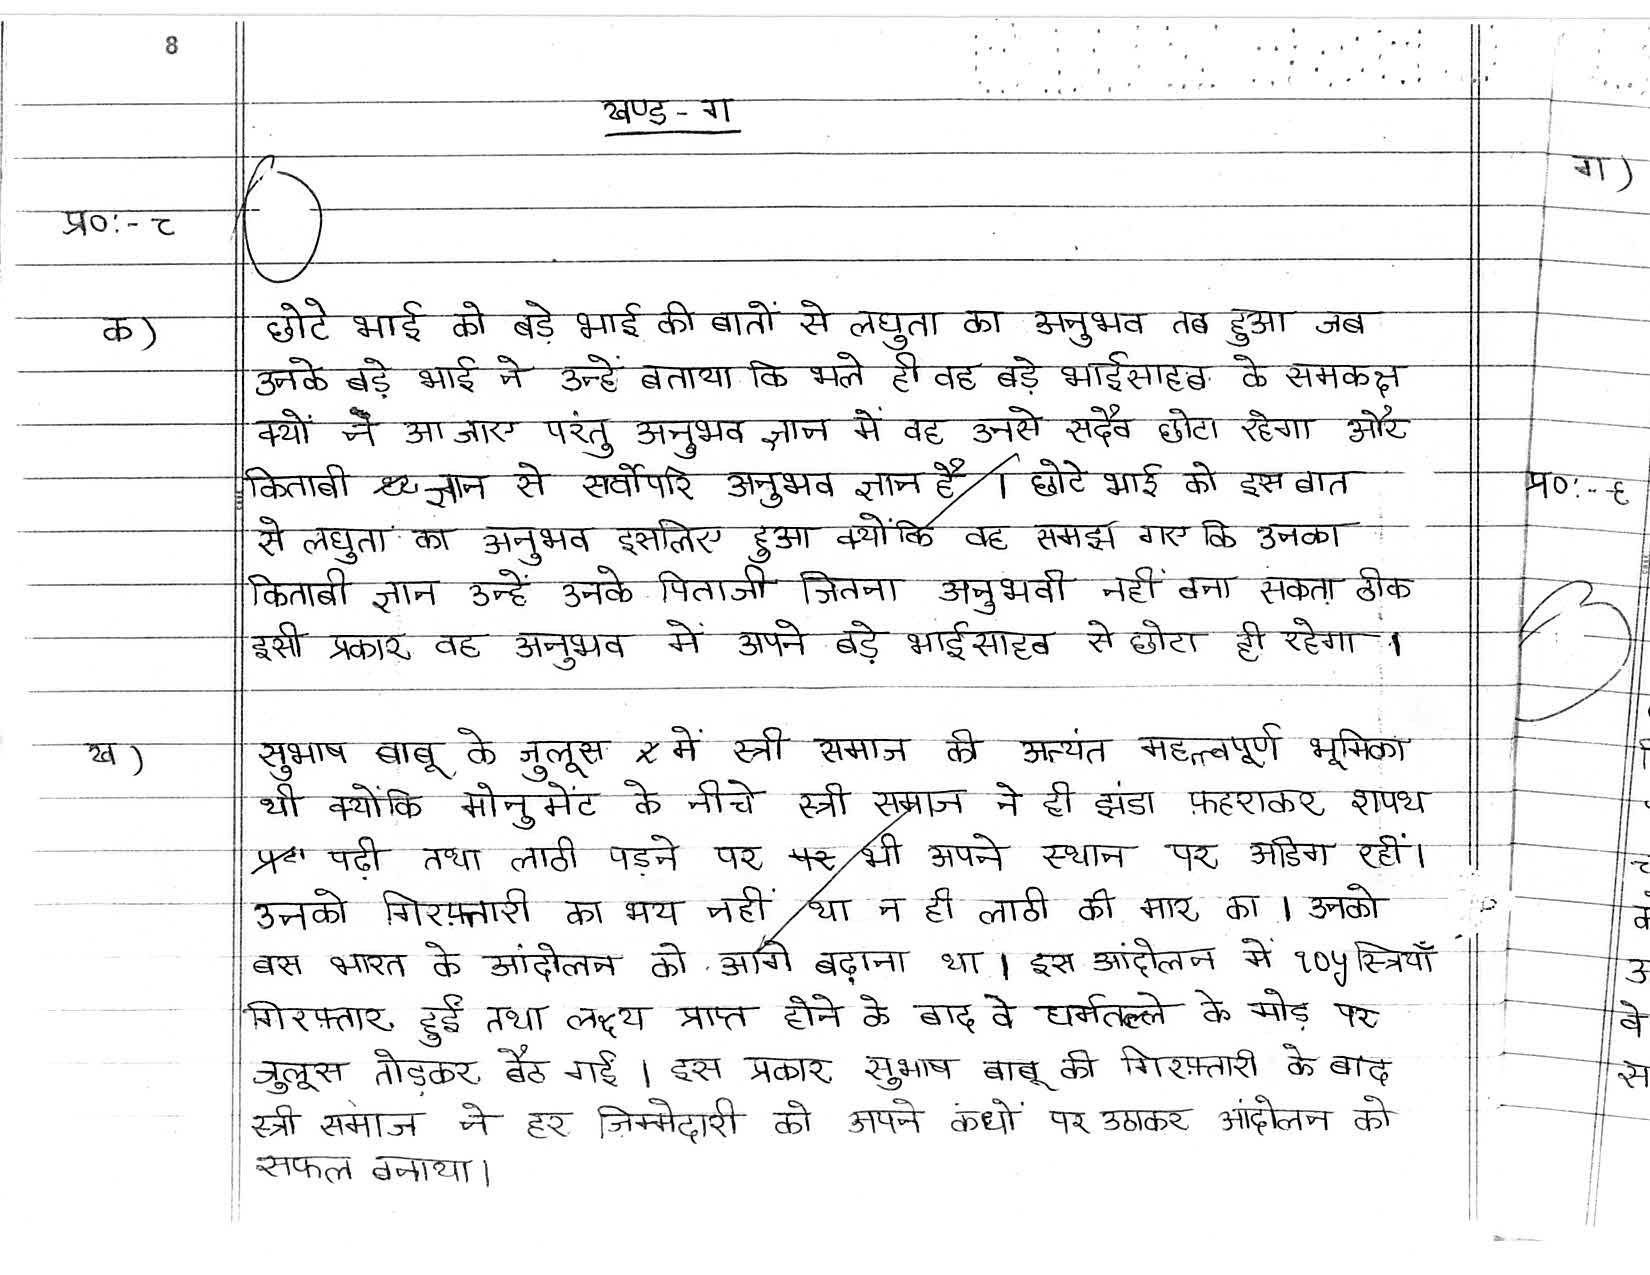 8
खण्ड - ग
प्र०:- ८
क)
छोटे भाई को बड़े भाई की बातों से लघुता का अनुभव तब हुआ जब
उनके बड़े भाई ने उन्हें बताया कि भले ही वह बड़े भाईसाहब के समकक्ष
क्यों न आ जाए परंतु अनुभव ज्ञान में वह उनसे सदैव छोटा रहेगा और
किताबी ज्ञान से सर्वोपरि अनुभव ज्ञान है। छोटे भाई को इस बात
से लघुता का अनुभव इसलिए हुआ क्योंकि वह समझ गए कि उनका
किताबी ज्ञान उन्हें उनके पिताजी जितना अनुभवी नहीं बना सकता ठीक
इसी प्रकार वह अनुभव में अपने बड़े भाईसाहब से छोटा ही रहेगा।
ख)
सुभाष बाबू के जुलूस में स्त्री समाज की अत्यंत महत्त्वपूर्ण भूमिका
थी क्योंकि मोनुमेंट के नीचे स्त्री समाज ने ही झंडा फ़हराकर शपथ
पढ़ी तथा लाठी पड़ने पर भी अपने स्थान पर अडिग रहीं।
उनको गिरफ़्तारी का भय नहीं था न ही लाठी की मार का। उनको
बस भारत के आंदोलन को आगे बढ़ाना था। इस आंदोलन में १०५ स्त्रियाँ
गिरफ़्तार हुईं तथा लक्ष्य प्राप्त होने के बाद वे धर्मतल्ले के मोड़ पर
जुलूस तोड़कर बैठ गईं। इस प्रकार सुभाष बाबू की गिरफ़्तारी के बाद
स्त्री समाज ने हर ज़िम्मेदारी को अपने कंधों पर उठाकर आंदोलन को
सफल बनाया।
ग)
प्र०:- ९